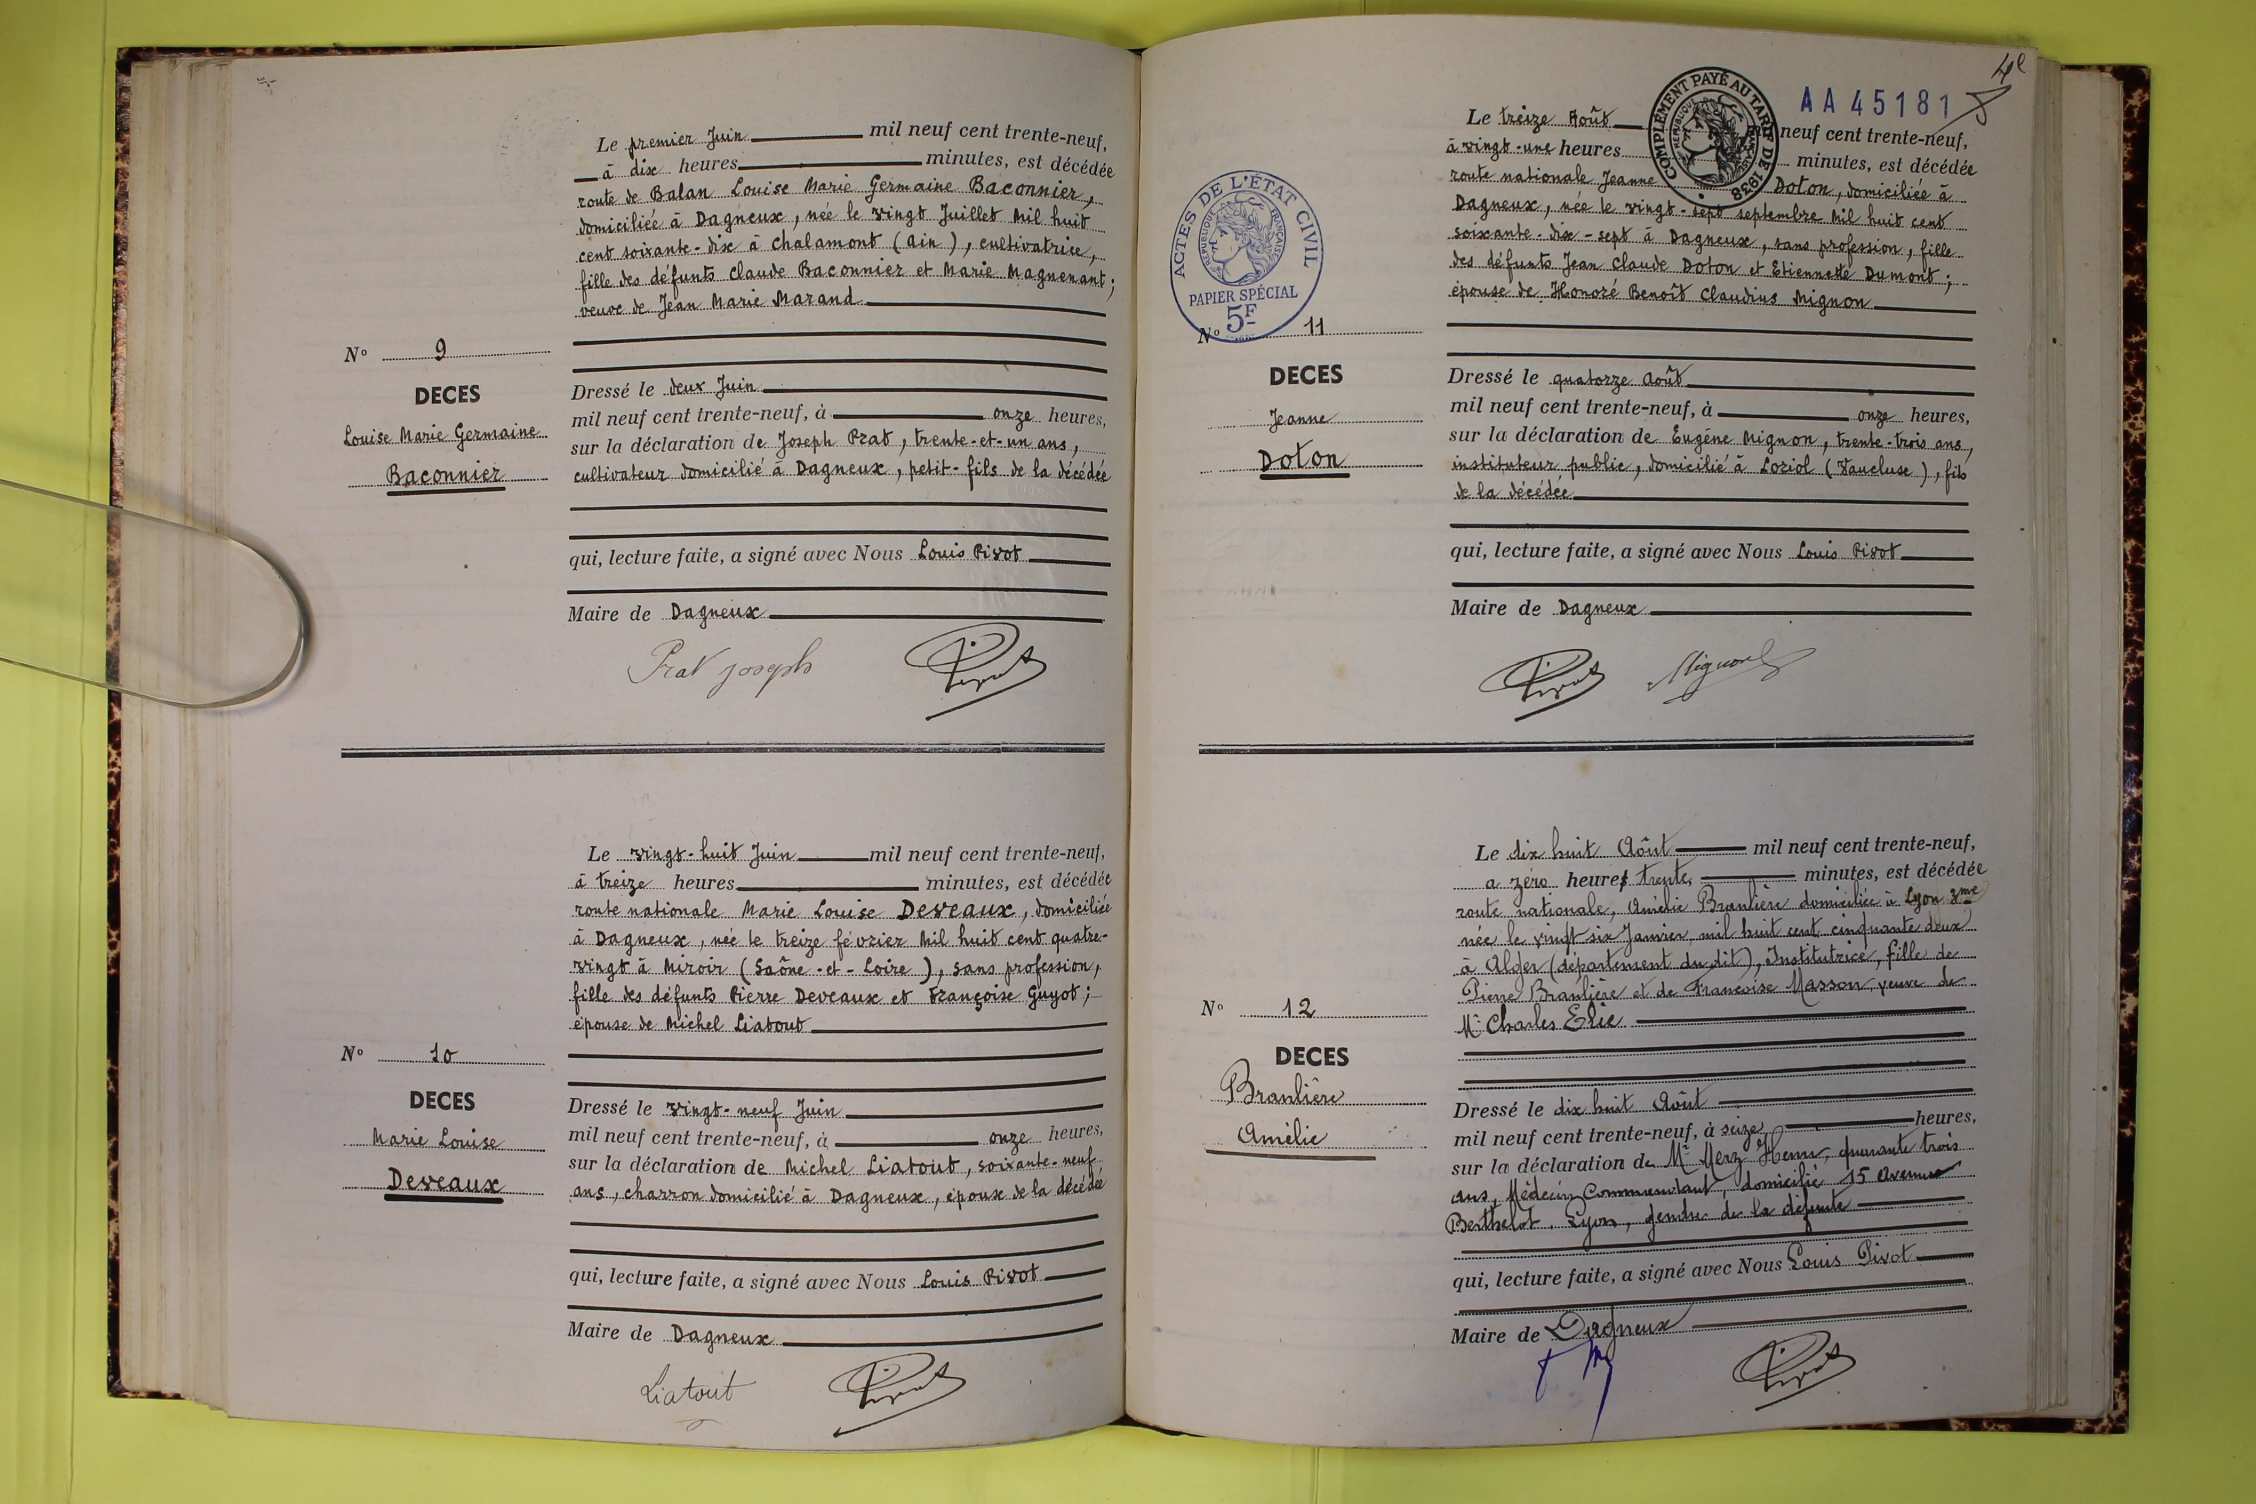 Le premier Juin mil neuf cent trente-neuf,
à dix heures minutes, est décédée
route de Balan Louise Marie Germaine Baconnier,
domiciliée à Dagneux, née le vingt Juillet Mil huit
cent soixante-dix à Chalamont (Ain), cultivatrice,
fille des défunts Claude Baconnier et Marie Magnenant;
veuve de Jean Marie Marand
N° 9
DECES
Louise Marie Germaine
Baconnier
Dressé le deux Juin
mil neuf cent trente-neuf, à onze heures,
sur la déclaration de Joseph Prat, trente-et-un ans,
cultivateur domicilié à Dagneux, petit-fils de la décédée
qui, lecture faite, a signé avec Nous Louis Pivot
Maire de Dagneux
Prat Joseph Pivot
Le vingt-huit Juin mil neuf cent trente-neuf,
à treize heures minutes, est décédée
route nationale Marie Louise Deveaux, domiciliée
à Dagneux, née le treize février Mil huit cent quatre-
vingt à Miroir (Saône-et-Loire), sans profession,
fille des défunts Pierre Deveaux et Françoise Guyot;
épouse de Michel Liatout
N° 10
DECES
Marie Louise
Deveaux
Dressé le vingt-neuf Juin
mil neuf cent trente-neuf, à onze heures,
sur la déclaration de Michel Liatout, soixante-neuf
ans, charron domicilié à Dagneux, époux de la décédée
qui, lecture faite, a signé avec Nous Louis Pivot
Maire de Dagneux
Liatout Pivot
4e
AA 45181
COMPLÉMENT PAYÉ AU TARIF DE 1938
RÉPUBLIQUE FRANÇAISE
Le treize Août neuf cent trente-neuf,
à vingt-une heures minutes, est décédée
route nationale Jeanne Doton, domiciliée à
Dagneux, née le vingt-sept septembre Mil huit cent
soixante-dix-sept à Dagneux, sans profession, fille
des défunts Jean Claude Doton et Etiennette Dumont;
épouse de Honoré Benoît Claudius Mignon
ACTES DE L'ÉTAT CIVIL
RÉPUBLIQUE FRANÇAISE
PAPIER SPÉCIAL
5F
N° 11
DECES
Jeanne
Doton
Dressé le quatorze Août
mil neuf cent trente-neuf, à onze heures,
sur la déclaration de Eugène Mignon, trente-trois ans,
instituteur public, domicilié à Loriol (Vaucluse), fils
de la décédée
qui, lecture faite, a signé avec Nous Louis Pivot
Maire de Dagneux
Pivot Mignon
Le dix huit Août mil neuf cent trente-neuf,
a zéro heures trente, minutes, est décédée
route nationale, Amélie Branlière domiciliée à Lyon 3me
née le vingt six Janvier mil huit cent cinquante deux
à Alger (département du dit), Institutrice, fille de
Pierre Branlière et de Françoise Masson, veuve de
Mr Charles Elie
N° 12
DECES
Branlière
Amélie
Dressé le dix huit Août
mil neuf cent trente-neuf, à seize heures,
sur la déclaration de Mr Merz Henri, quarante trois
ans, Médecin Commandant, domicilié 15 Avenue
Berthelot. Lyon, gendre de la défunte
qui, lecture faite, a signé avec Nous Louis Pivot
Maire de Dagneux
Pivot